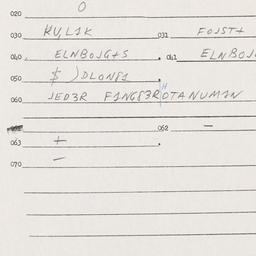 020 0
030 KULIK 031 FOJST+
040 ELNBOJG+S 041 ELNBOJ
050
060 JED3R F1NG83R OTANUM1N
062 —
063 +
070 —